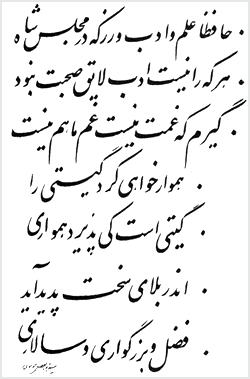 . حافظا علم و ادب ورز که در مجلس شاه
. هر که را نیست ادب لایق صحبت نبود
. گیرم که غمت نیست غم ما هم نیست
. هموار خواهی کرد گیتی را
. گیتی است کی پذیرد همواری
. اندر بلای سخت پدید آید
. فضل و بزرگواری و سالاری